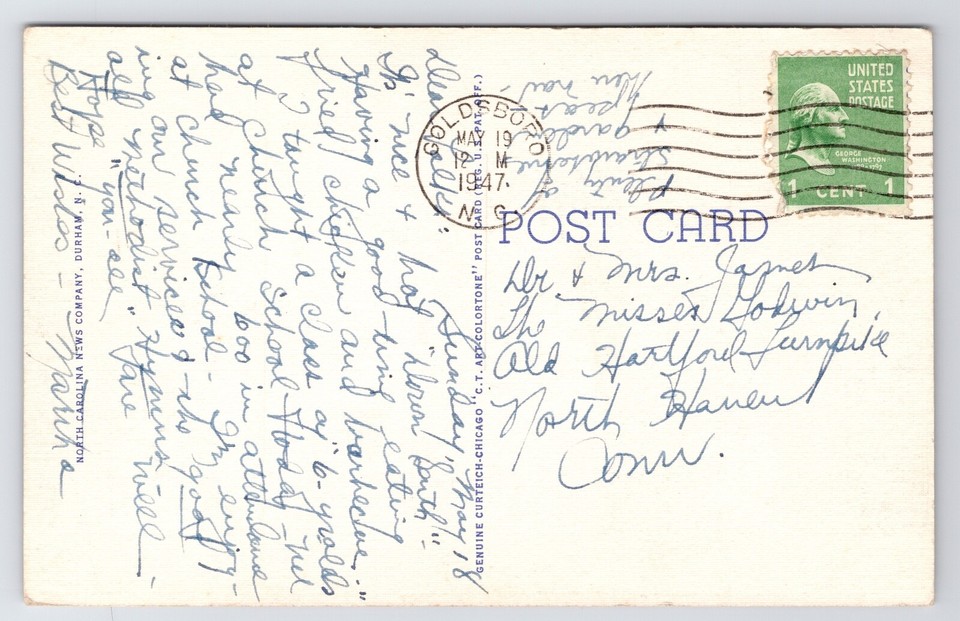 Sunday, May 18
Dear Folks,
It's nice & hot "down South" -
Having a good time eating
fried chicken and barbecue."
I taught a class of "6-yr olds
at Church School today -
had nearly 600 in attendance
at church school - I'm enjoy-
ing our services & the good
old Methodist Hymns.
Hope "you-all" are well -
Best Wishes - Martha
Plenty of
strawberries
&
garden
peas
here now -
GOLDSBORO
MAY 19
12 M
1947
N. C.
UNITED
STATES
POSTAGE
GEORGE
WASHINGTON
1 CENT 1
POST CARD
Dr. & Mrs. James
The Misses Godwin,
Old Hartford Turnpike
North Haven
Conn.
GENUINE CURTEICH-CHICAGO "C.T. ART-COLORTONE" POST CARD (REG. U.S. PAT. OFF.)
NORTH CAROLINA NEWS COMPANY, DURHAM, N. C.